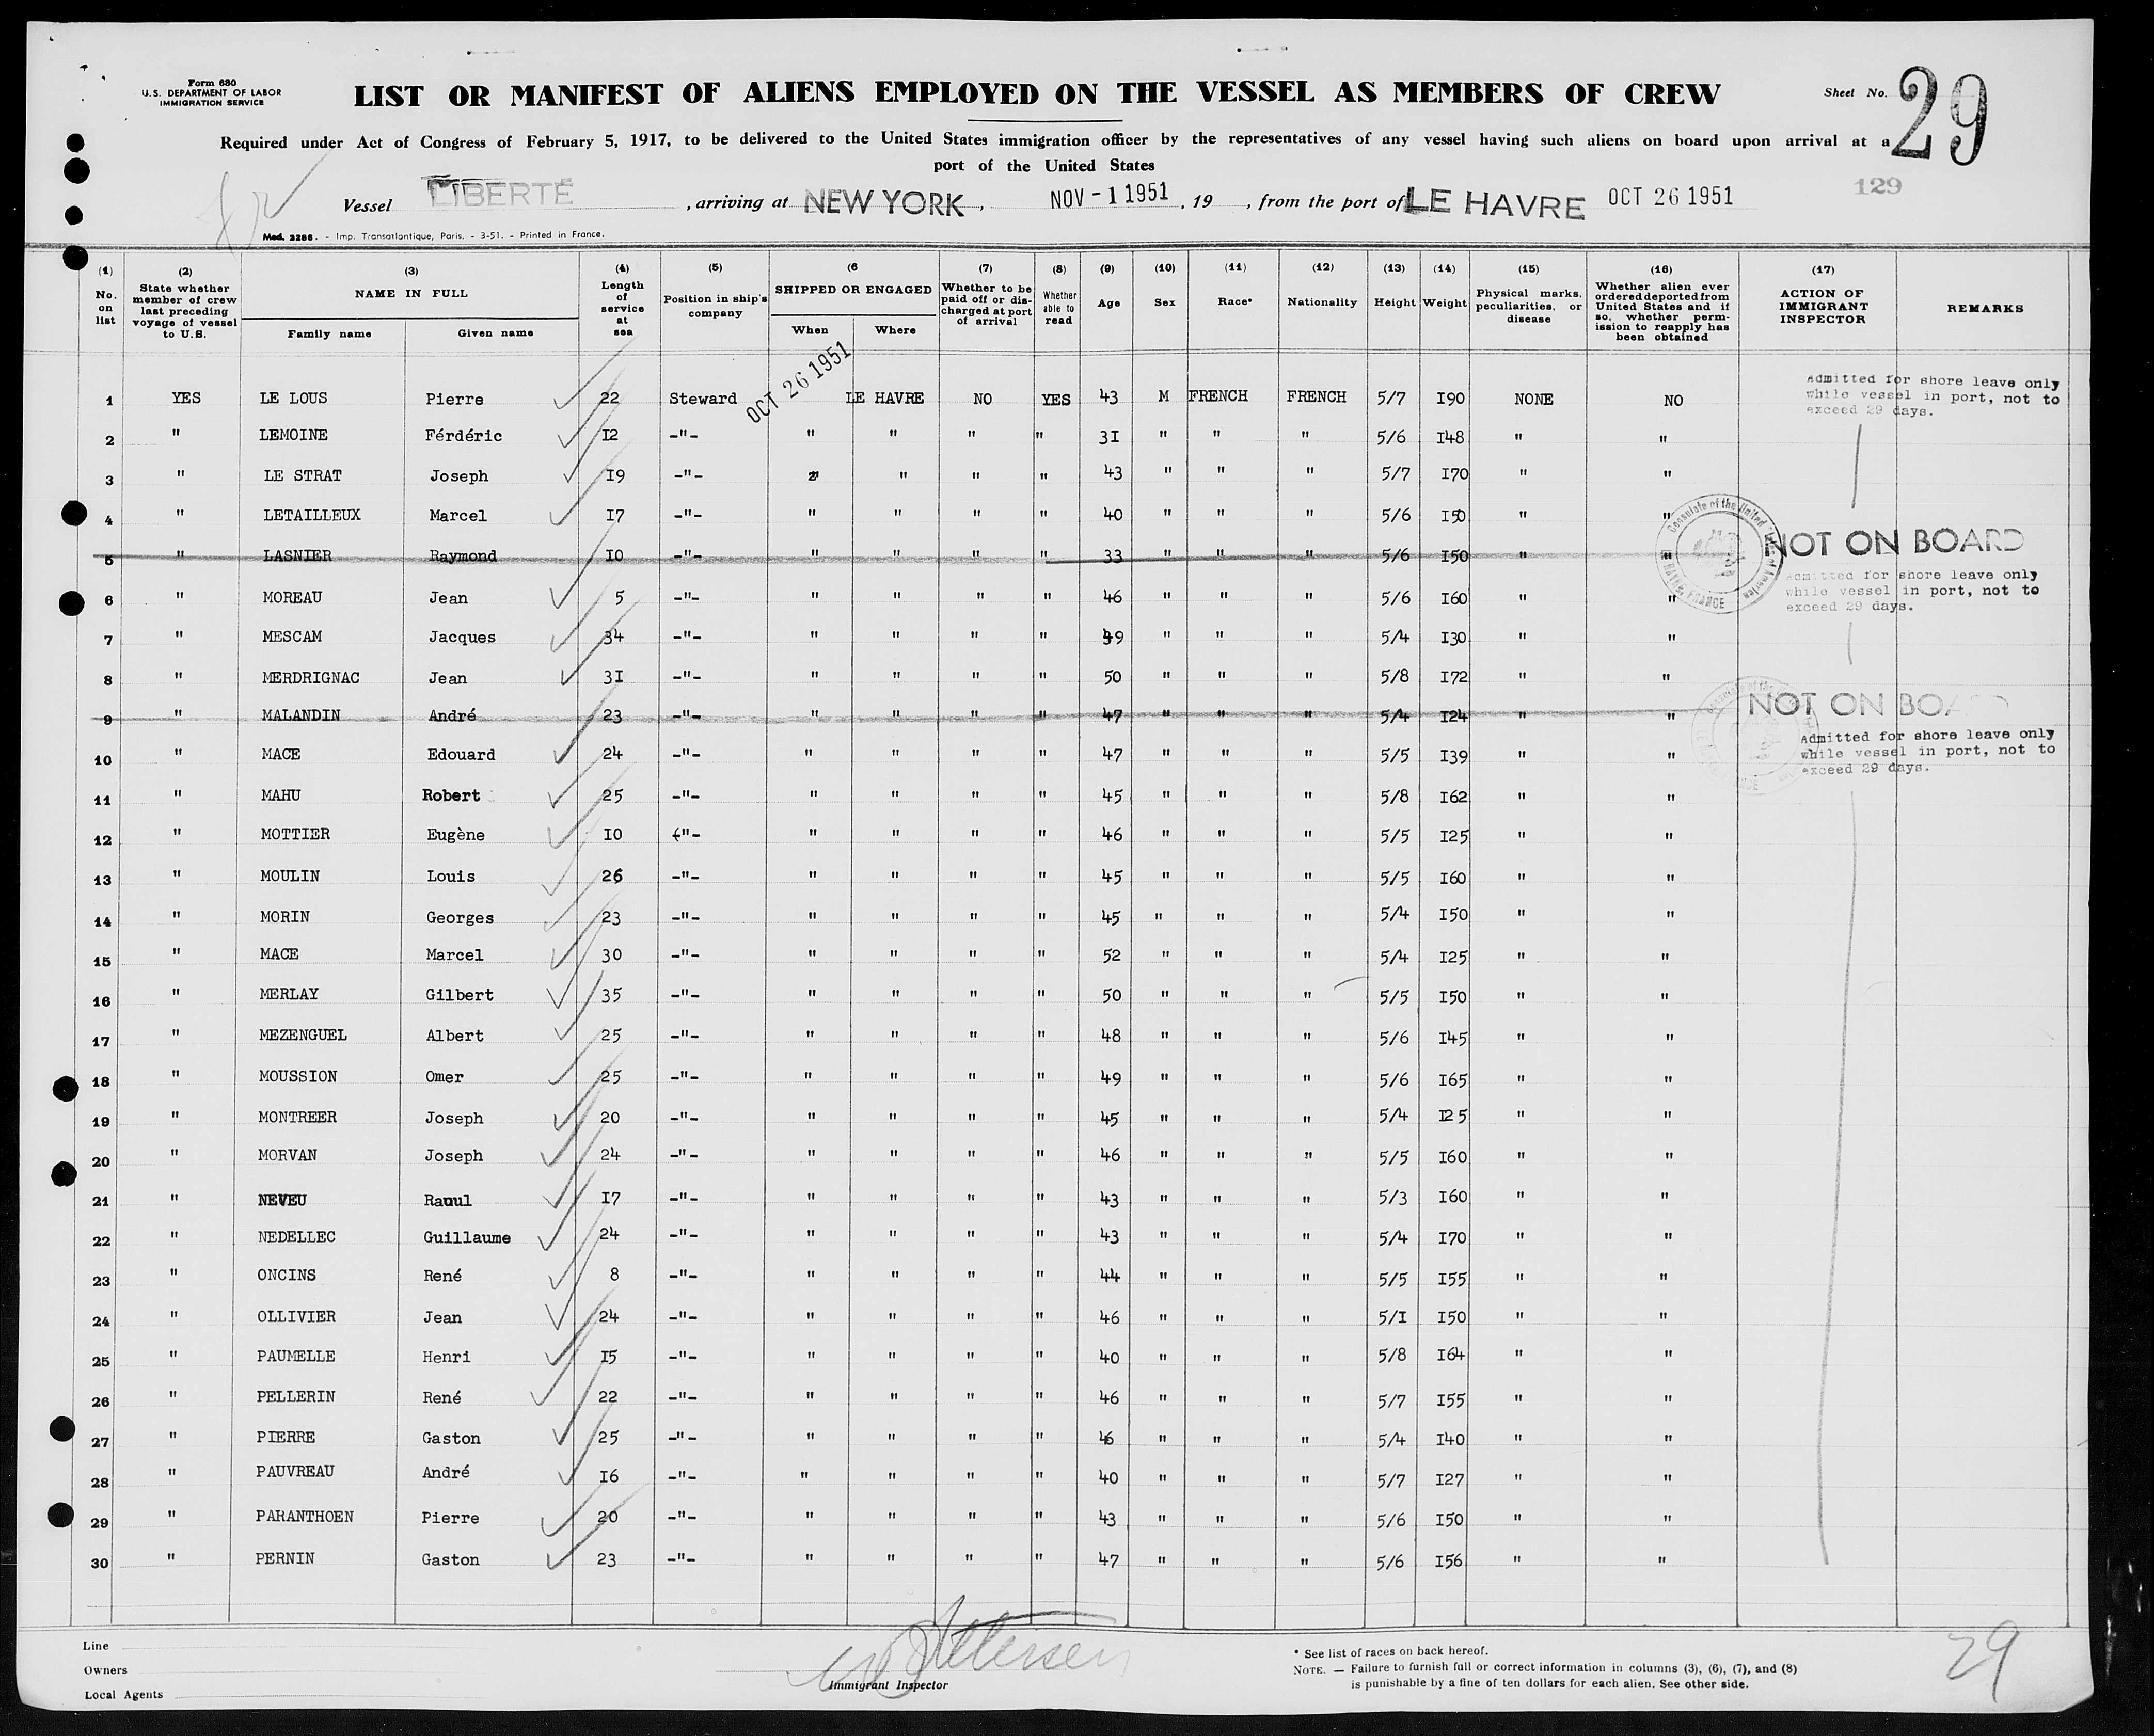 Form 680
U.S. DEPARTMENT OF LABOR
IMMIGRATION SERVICE
LIST OR MANIFEST OF ALIENS EMPLOYED ON THE VESSEL AS MEMBERS OF CREW
Sheet No. 29
Required under Act of Congress of February 5, 1917, to be delivered to the United States immigration officer by the representatives of any vessel having such aliens on board upon arrival at a
port of the United States
129
Vessel LIBERTÉ , arriving at NEW YORK , NOV - 1 1951 , 19 , from the port of LE HAVRE OCT 26 1951
Mod. 2286. - Imp. Transatlantique, Paris. - 3-51. - Printed in France.
(1) No. on list (2) State whether member of crew last preceding voyage of vessel to U.S. (3) NAME IN FULL Family name Given name (4) Length of service at sea (5) Position in ship's company (6 SHIPPED OR ENGAGED When Where (7) Whether to be paid off or discharged at port of arrival (8) Whether able to read (9) Age (10) Sex (11) Race* (12) Nationality (13) Height (14) Weight (15) Physical marks, peculiarities, or disease (16) Whether alien ever ordered deported from United States and if so, whether permission to reapply has been obtained (17) ACTION OF IMMIGRANT INSPECTOR REMARKS
1 YES LE LOUS Pierre 22 Steward OCT 26 1951 LE HAVRE NO YES 43 M FRENCH FRENCH 5/7 I90 NONE NO
Admitted for shore leave only
while vessel in port, not to
exceed 29 days.
2 " LEMOINE Férdéric I2 -"- " " " " 3I " " " 5/6 I48 " "
3 " LE STRAT Joseph I9 -"- " " " " 43 " " " 5/7 I70 " "
4 " LETAILLEUX Marcel I7 -"- " " " " 40 " " " 5/6 I50 " "
5 " LASNIER Raymond I0 -"- " " " " 33 " " " 5/6 I50 " " NOT ON BOARD
Consulate of the United States of America
HAVRE, FRANCE
Admitted for shore leave only
while vessel in port, not to
exceed 29 days.
6 " MOREAU Jean 5 -"- " " " " 46 " " " 5/6 I60 " "
7 " MESCAM Jacques 34 -"- " " " " 49 " " " 5/4 I30 " "
8 " MERDRIGNAC Jean 3I -"- " " " " 50 " " " 5/8 I72 " "
9 " MALANDIN André 23 -"- " " " " 47 " " " 5/4 I24 " " NOT ON BOA
Admitted for shore leave only
while vessel in port, not to
exceed 29 days.
10 " MACE Edouard 24 -"- " " " " 47 " " " 5/5 I39 " "
11 " MAHU Robert 25 -"- " " " " 45 " " " 5/8 I62 " "
12 " MOTTIER Eugène I0 ("- " " " " 46 " " " 5/5 I25 " "
13 " MOULIN Louis 26 -"- " " " " 45 " " " 5/5 I60 " "
14 " MORIN Georges 23 -"- " " " " 45 " " " 5/4 I50 " "
15 " MACE Marcel 30 -"- " " " " 52 " " " 5/4 I25 " "
16 " MERLAY Gilbert 35 -"- " " " " 50 " " " 5/5 I50 " "
17 " MEZENGUEL Albert 25 -"- " " " " 48 " " " 5/6 I45 " "
18 " MOUSSION Omer 25 -"- " " " " 49 " " " 5/6 I65 " "
19 " MONTREER Joseph 20 -"- " " " " 45 " " " 5/4 I25 " "
20 " MORVAN Joseph 24 -"- " " " " 46 " " " 5/5 I60 " "
21 " NEVEU Raoul I7 -"- " " " " 43 " " " 5/3 I60 " "
22 " NEDELLEC Guillaume 24 -"- " " " " 43 " " " 5/4 I70 " "
23 " ONCINS René 8 -"- " " " " 44 " " " 5/5 I55 " "
24 " OLLIVIER Jean 24 -"- " " " " 46 " " " 5/I I50 " "
25 " PAUMELLE Henri I5 -"- " " " " 40 " " " 5/8 I64 " "
26 " PELLERIN René 22 -"- " " " " 46 " " " 5/7 I55 " "
27 " PIERRE Gaston 25 -"- " " " " 46 " " " 5/4 I40 " "
28 " PAUVREAU André I6 -"- " " " " 40 " " " 5/7 I27 " "
29 " PARANTHOEN Pierre 20 -"- " " " " 43 " " " 5/6 I50 " "
30 " PERNIN Gaston 23 -"- " " " " 47 " " " 5/6 I56 " "
Line
Owners
Local Agents
Immigrant Inspector
* See list of races on back hereof.
NOTE. — Failure to furnish full or correct information in columns (3), (6), (7), and (8)
is punishable by a fine of ten dollars for each alien. See other side.
29